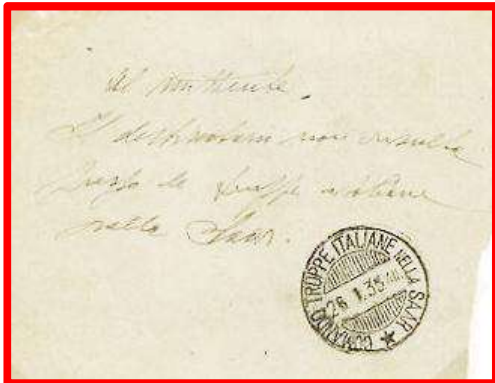 Al mittente.
Il destinatario non risulta
presso le truppe italiane
nella Saar.
COMANDO TRUPPE ITALIANE NELLA SAAR
26.1.35.XIII